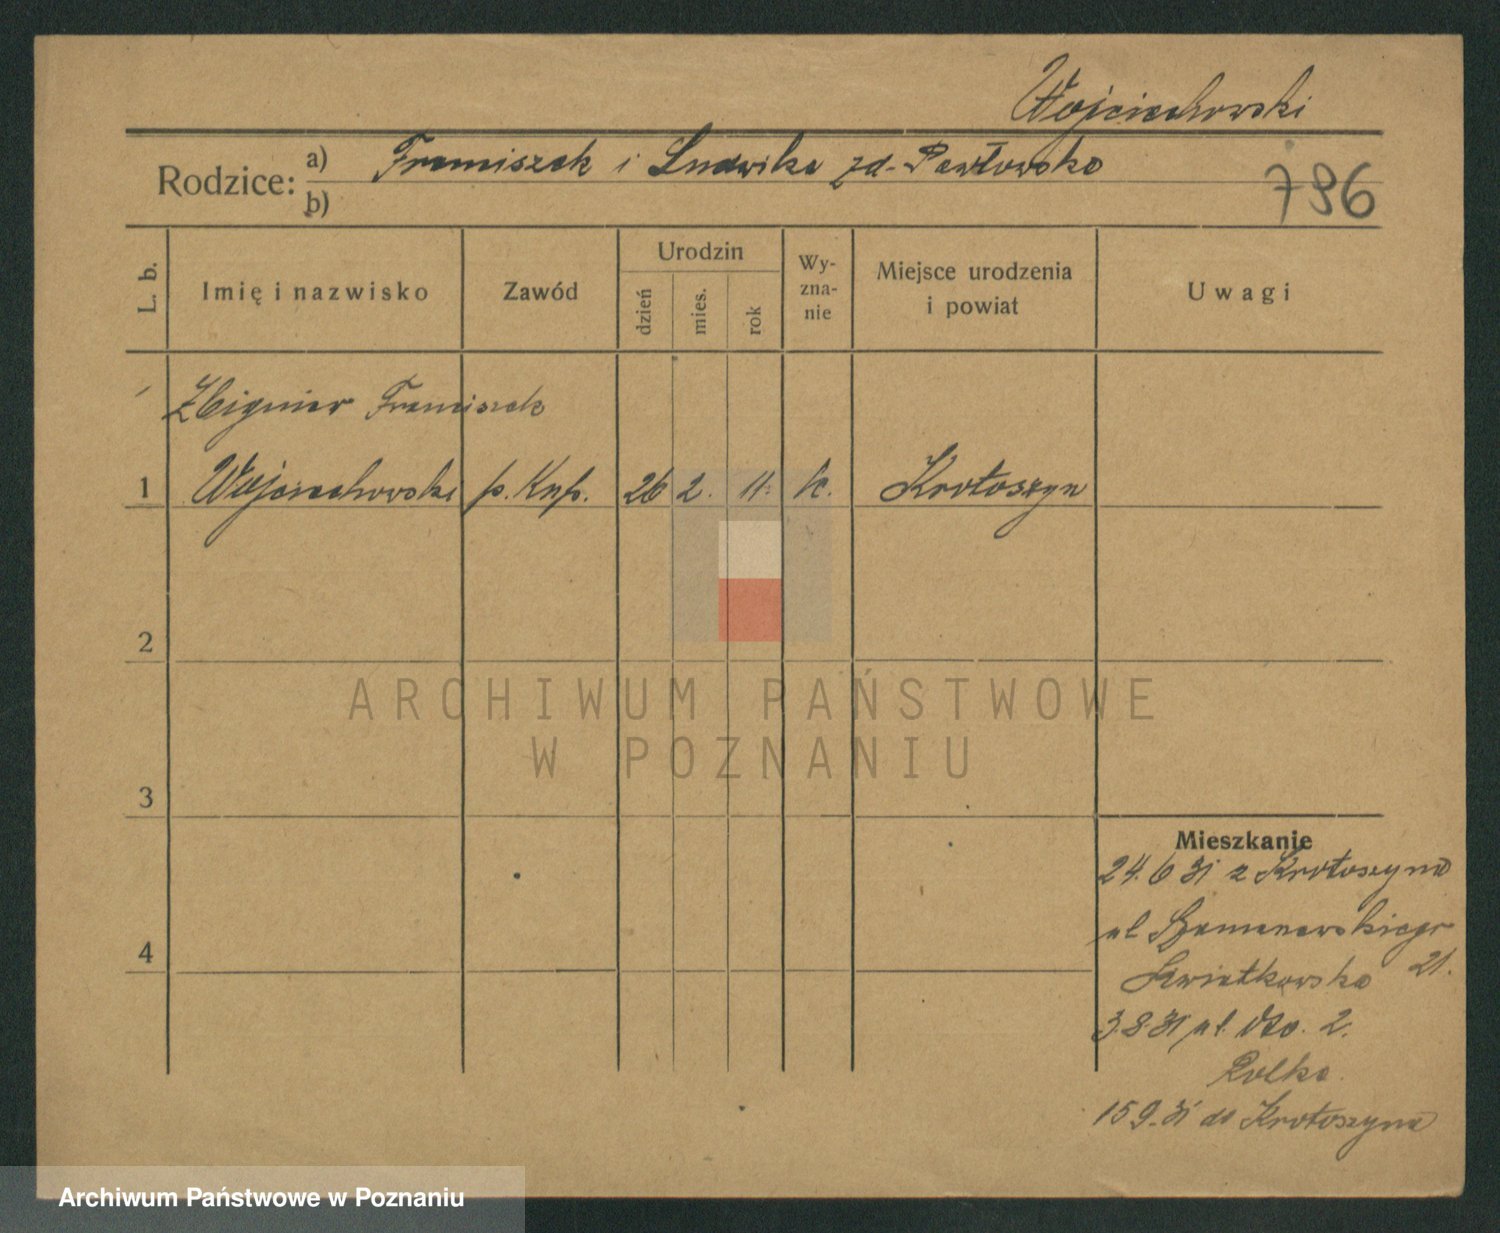 Wojciechowski
Rodzice: a) Franciszek i Ludwika zd. Pawłowska
b)
796
L. b.
Imię i nazwisko
Zawód
Urodzin
dzień
mies.
rok
Wy-
zna-
nie
Miejsce urodzenia
i powiat
Uwagi
Zbigniew Franciszek
1 Wojciechowski p. Kup. 26 2. 11. k. Krotoszyn
2
3
4
ARCHIWUM PAŃSTWOWE
W POZNANIU
Mieszkanie
24.6 31 z Krotoszyna
ul
21.
Kwiatkowska
3.8.31 ul. 2.
Polka
15 9.31 do Krotoszyna
Archiwum Państwowe w Poznaniu